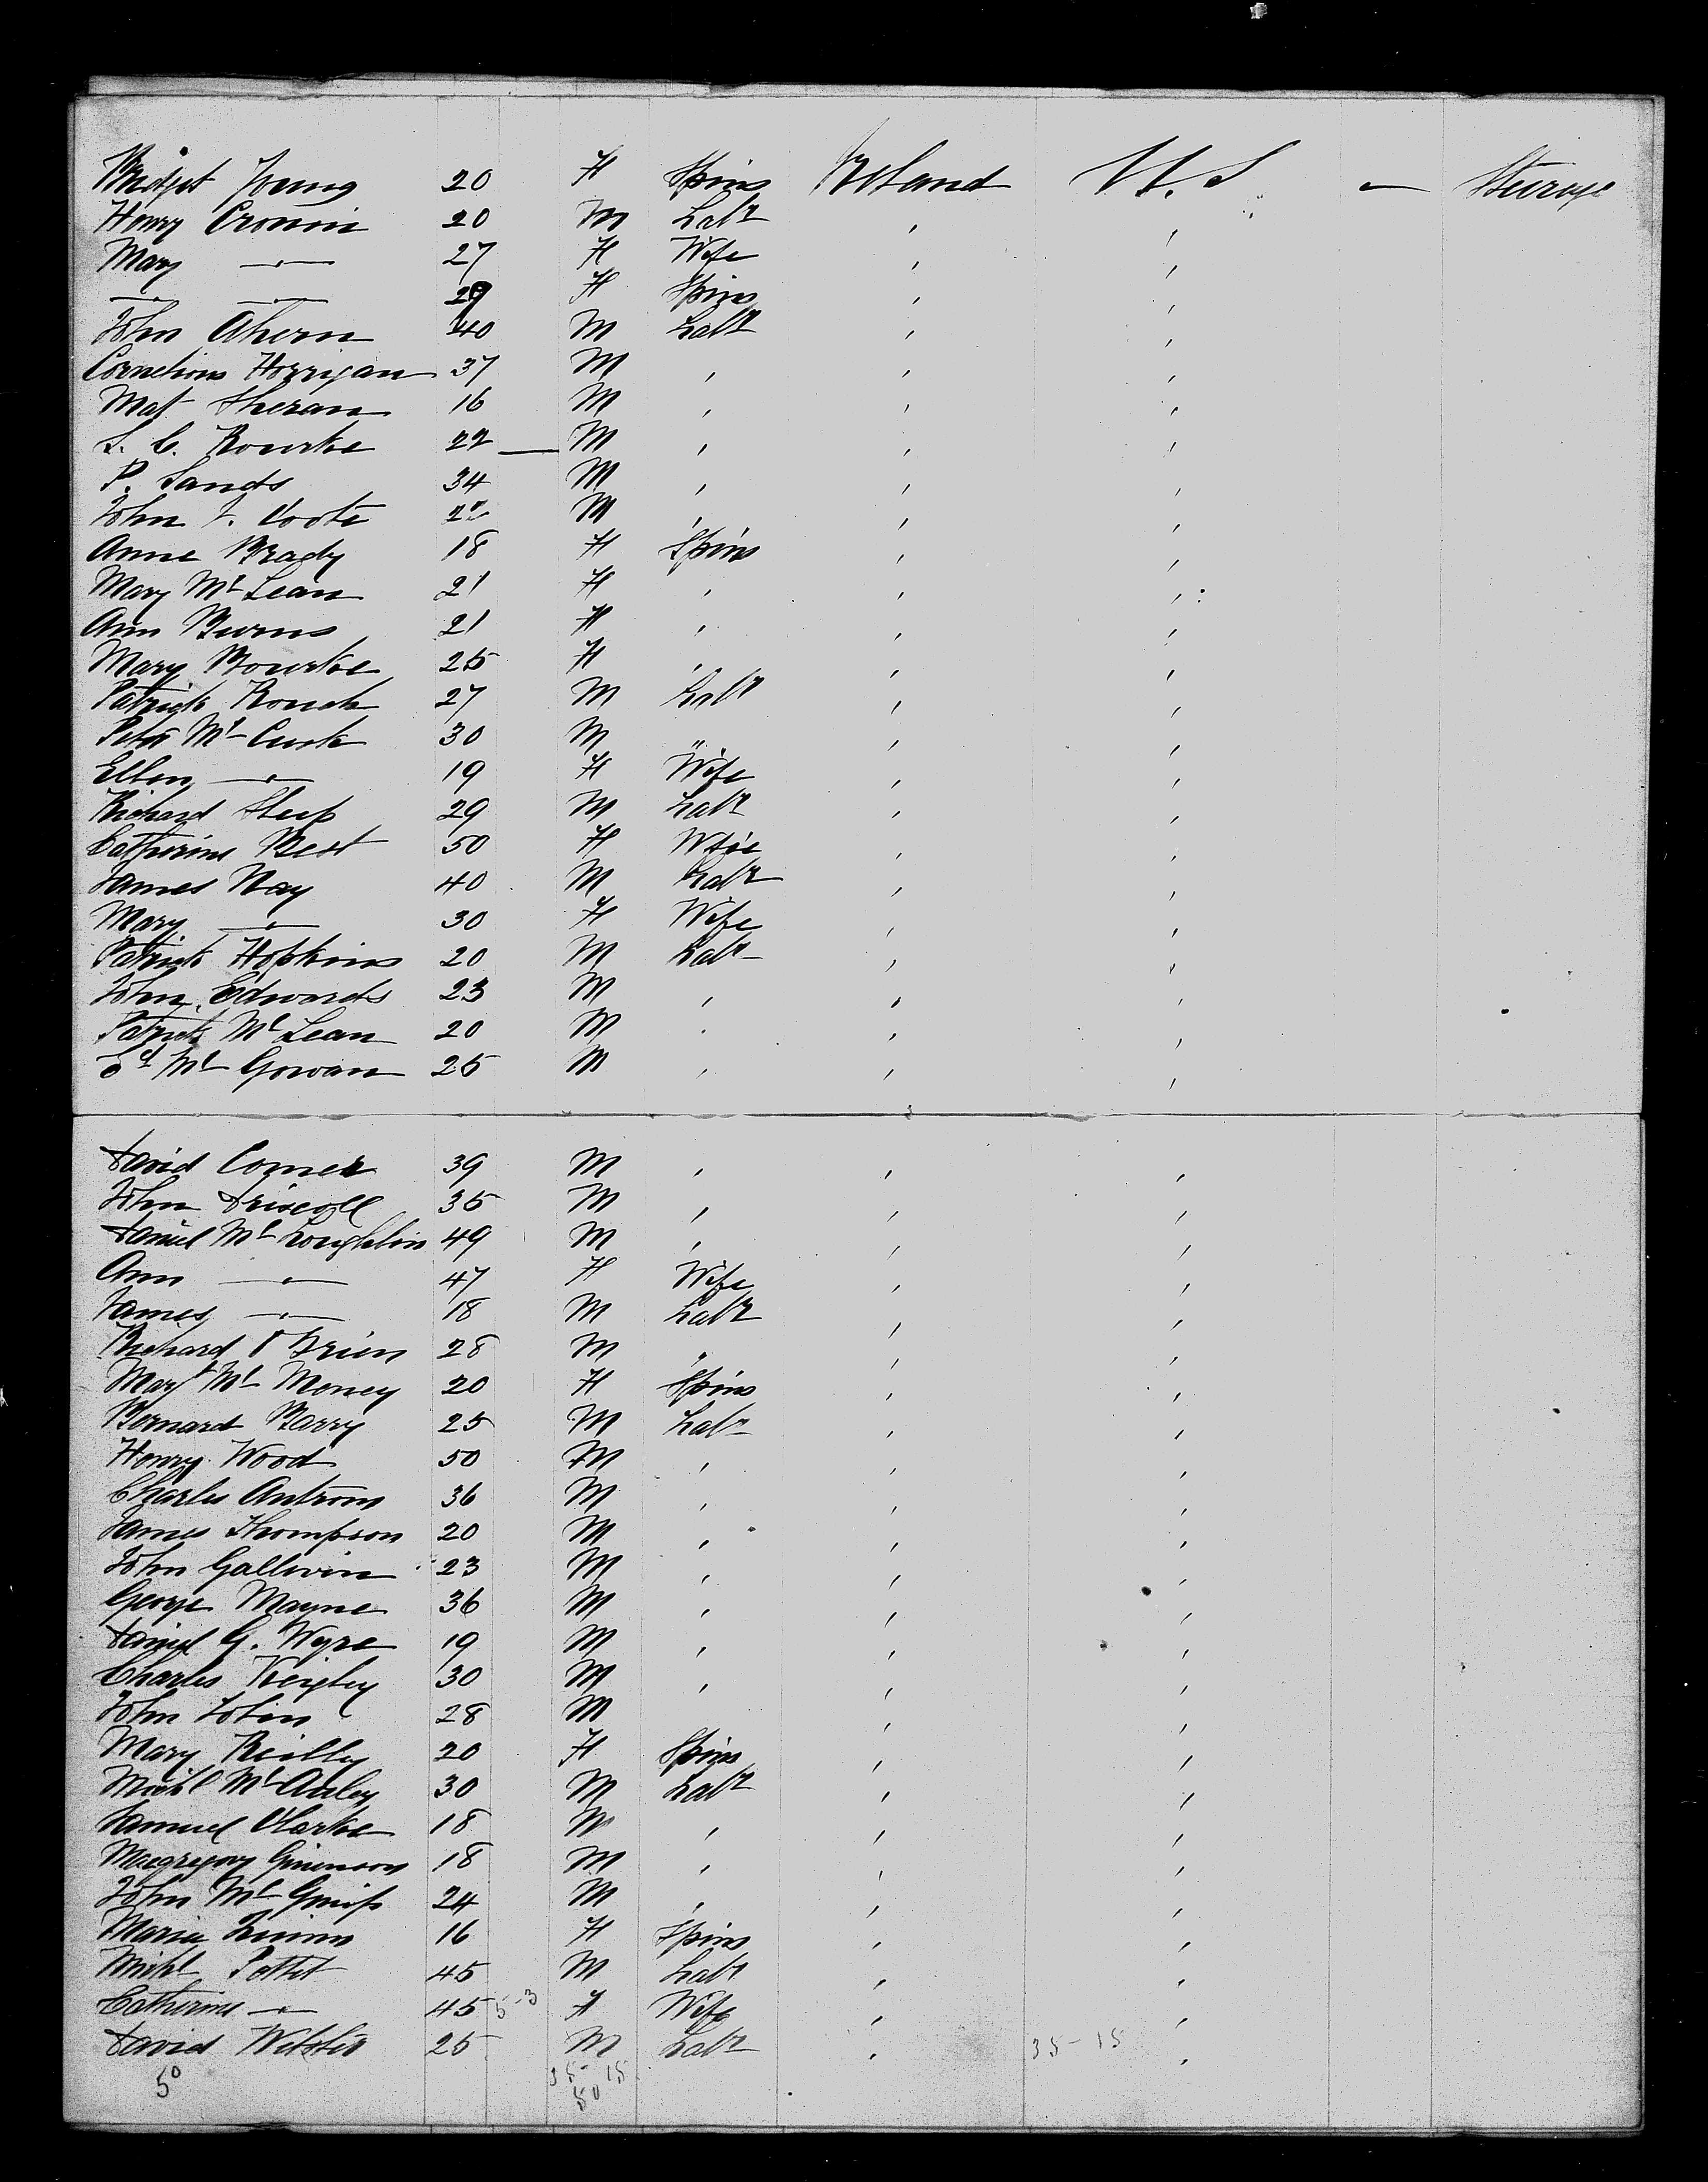 Bridget Young 20 F Spins Ireland U.S — Steerage
Henry Cronin 20 M Labr , ,
Mary —"— 27 F Wife , ,
—"— —"— 29 F Spins , ,
John Ahern 40 M Labr , ,
Cornelious Horrigan 37 M , , ,
Mat Sheran 16 M , , ,
S. C. Rourke 22 — M , , ,
P. Sands 34 M , , ,
John J. Coote M , , ,
Anne Brady 18 F Spins , ,
Mary Mc Lean 21 F , , ,
Ann Burns 21 F , , ,
Mary Bourke 25 F , , ,
Patrick 27 M Labr , ,
Peter Mc 30 M " , ,
Ellen —"— 19 F Wife , ,
Richard 29 M Labr , ,
Catherine Best 50 F Wife , ,
James Nay 40 M Labr , ,
Mary —"— 30 F Wife , ,
Patrick Hopkins 20 M Labr , ,
John Edwards 23 M , , ,
Patrick Mc Lean 20 M , , ,
Ed Mc Gowan 25 M , , ,
David Comer 39 M , , ,
John Driscoll 35 M , , ,
Daniel Mc Loughlin 49 M , , ,
Ann —"— 47 F Wife , ,
James —"— 18 M Labr , ,
Richard O Brien 28 M " , ,
Margt Mc Money 20 F Spins , ,
Bernard Barry 25 M Labr , ,
Henry Wood 50 M , , ,
Charles Antrom 36 M , , ,
James Thompson 20 M , , ,
John Galliwin 23 M , , ,
George Mayne 36 M , , ,
Daniel G. Wyre 19 M , , ,
Charles Keigley 30 M , , ,
John Tobin 28 M , ,
Mary Reilly 20 F Spins , ,
Michl Mc Auley 30 M Labr , ,
Samuel Clarke 18 M , , ,
Macgregory 18 M , , ,
John Mc 24 M , , ,
Maria Quinn 16 F Spins , ,
Michl Pettit 45 M Labr , ,
Catherine —"— 45 5-3 F Wife , ,
David Webster 25 M Labr , 35-15 ,
50 35-15
50